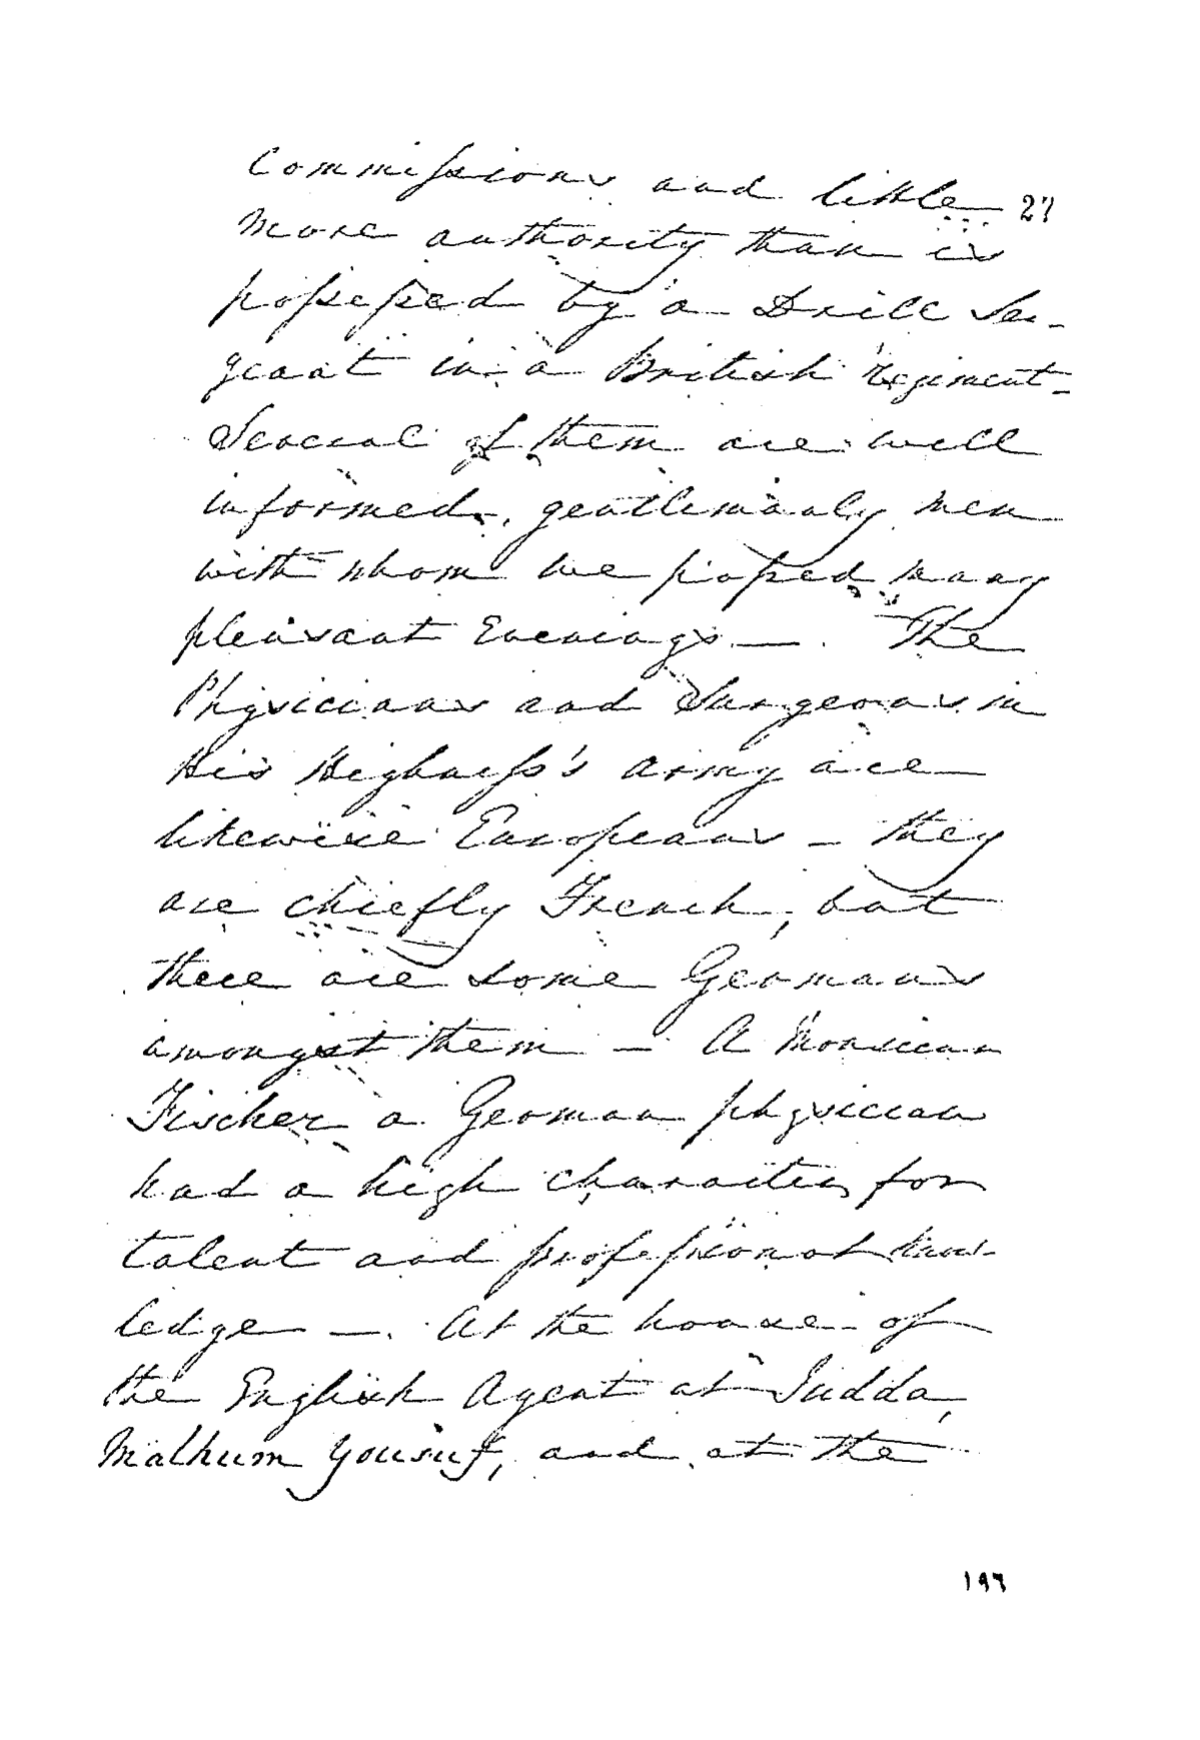 Commissions and little 27
more authority than is
possessed by a Drill Ser-
geant in a British Regiment-
Several of them are well
informed, gentlemanly men
with whom we passed many
pleasant Evenings —. The
Physicians and Surgeons in
His Highness's army are
likewise Europeans – they
are chiefly French, but
there are some Germans
amongst them – A Monsieur
Fischer a German physician
had a high character for
talent and professional know-
ledge —. At the house of
the English Agent at Judda,
Malhum Yousuf, and at the
197